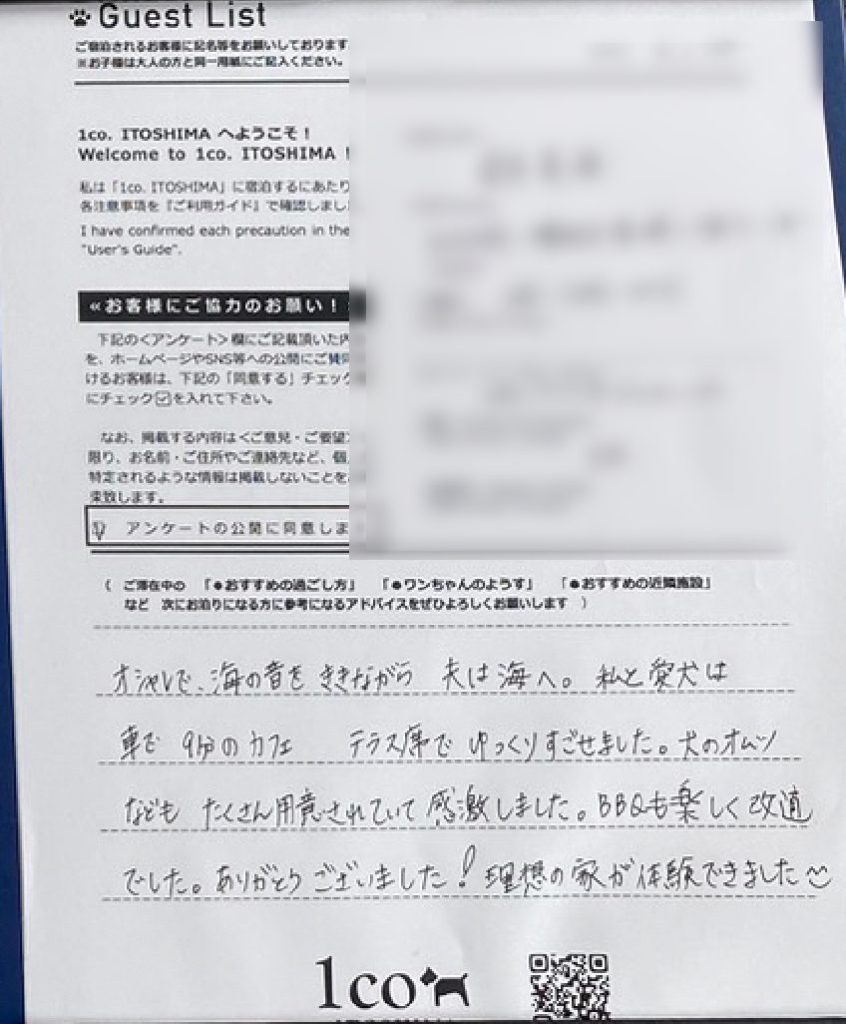 Guest List
ご宿泊されるお客様に記名等をお願いしております
※お子様は大人の方と同一用紙にご記入ください。
1co. ITOSHIMA へようこそ！
Welcome to 1co. ITOSHIMA !
私は「1co. ITOSHIMA」に宿泊するにあたり
各注意事項を『ご利用ガイド』で確認しまし
I have confirmed each precaution in the
"User's Guide".
≪お客様にご協力のお願い！
下記の<アンケート>欄にご記載頂いた内
を、ホームページやSNS等への公開にご賛同
けるお客様は、下記の「同意する」チェック
にチェック☑を入れて下さい。
なお、掲載する内容は<ご意見・ご要望
限り、お名前・ご住所やご連絡先など、個
特定されるような情報は掲載しないことをお
束致します。
アンケートの公開に同意しま
( ご滞在中の 「●おすすめの過ごし方」 「●ワンちゃんのようす」 「●おすすめの近隣施設」
など 次にお泊りになる方に参考になるアドバイスをぜひよろしくお願いします )
オシャレで、海の音をききながら 夫は海へ。私と愛犬は
車で 9分のカフェ テラス席で ゆっくりすごせました。犬のオムツ
なども たくさん用意されていて 感激しました。BBQも楽しく 改適
でした。ありがとうございました！理想の家が体験できました
1co